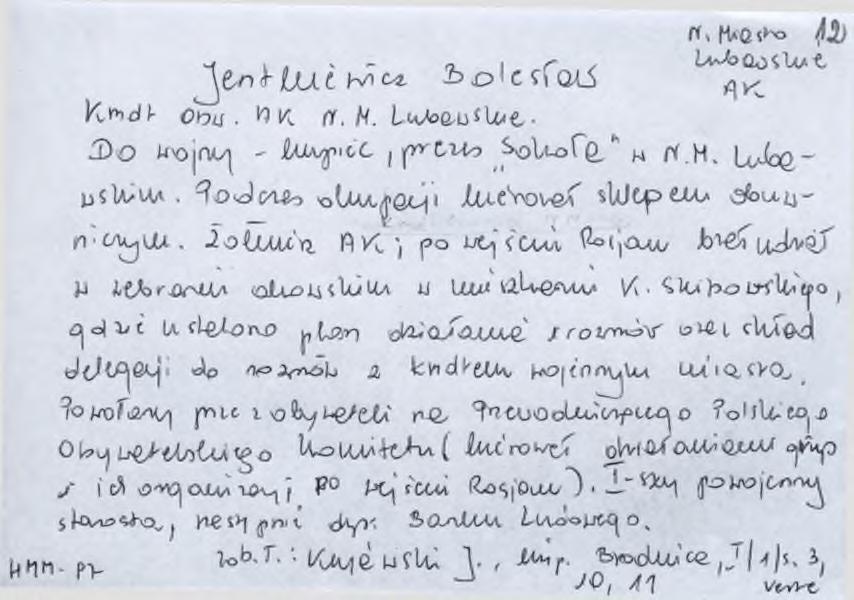 N. Miasto 12
Lubawskie
AK
Jentkiewicz Bolesław
Kmdt Obw. AK N. M. Lubawskie.
Do wojny - kupiec, prezes „Sokoła" w N.M. Luba-
wskim. Podczas okupacji kierował sklepem obuw-
niczym. Żołnierz AK; po wejściu Rosjan brał udział
w zebraniu akowskim w mieszkaniu K. Skibowskiego,
gdzie ustalono plan działania i rozmów oraz skład
delegacji do rozmów z kmdtem wojennym miasta.
Powołany przez obywateli na Przewodniczącego Polskiego
Obywatelskiego Komitetu (kierował działaniami grup
i ich organizacji po wejściu Rosjan). I-szy powojenny
starosta, następnie dyr. Banku Ludowego.
Zob. T.: Krajewski J., Insp. Brodnica, I/1/s. 3,
10, 11 verte
HMM-PZ